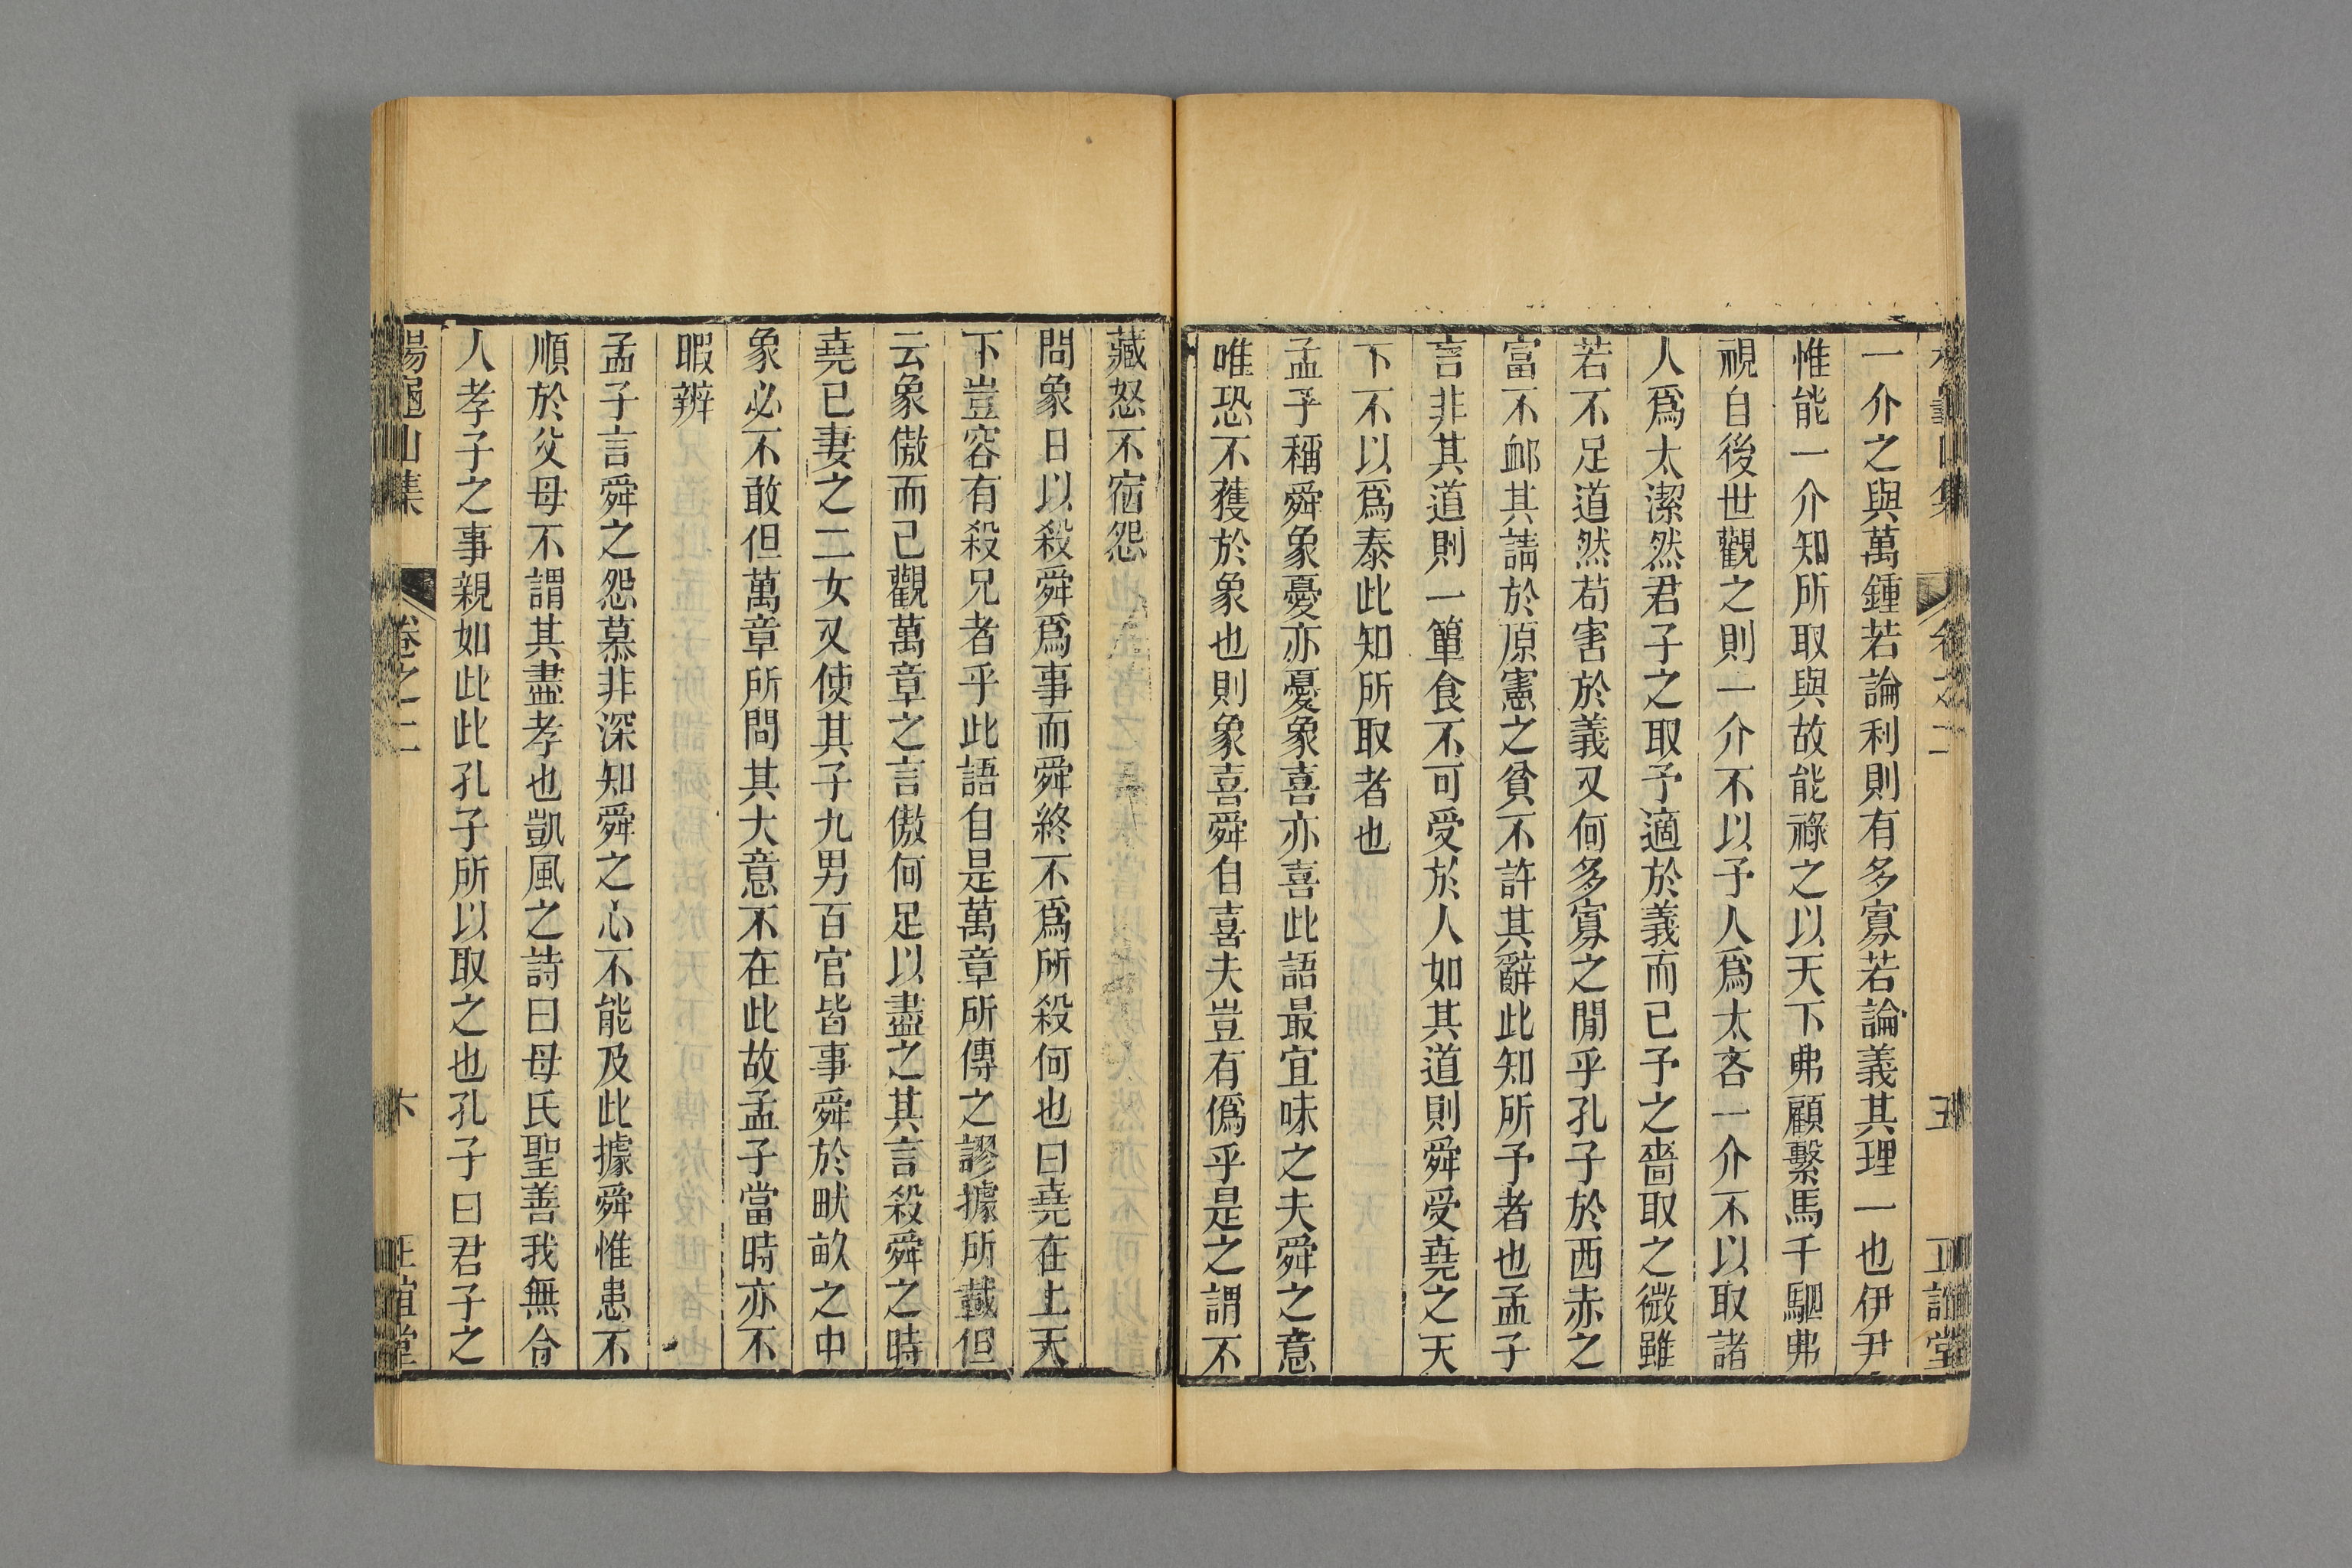 一介之與萬鍾若論利則有多寡若論義其理一也伊尹
惟能一介知所取與故能祿之以天下弗顧繫馬千駟弗
視自後世觀之則一介不以予人爲太吝一介不以取諸
人爲太潔然君子之取予適於義而已予之嗇取之微雖
若不足道然苟害於義又何多寡之閒乎孔子於西赤之
富不衈其請於原憲之貧不許其辭此知所予者也孟子
言非其道則一簞食不可受於人如其道則舜受堯之天
下不以爲泰此知所取者也
孟子稱舜象憂亦憂象喜亦喜此語最宜味之夫舜之意
唯恐不獲於象也則象喜舜自喜夫豈有僞乎是之謂不
藏怒不宿怨
問象日以殺舜爲事而舜終不爲所殺何也曰堯在上天
下豈容有殺兄者乎此語自是萬章所傳之謬據所載但
云象傲而已觀萬章之言傲何足以盡之其言殺舜之時
堯已妻之二女又使其子九男百官皆事舜於畎畝之中
象必不敢但萬章所問其大意不在此故孟子當時亦不
暇辨
孟子言舜之怨慕非深知舜之心不能及此據舜惟患不
順於父母不謂其盡孝也凱風之詩曰母氏聖善我無令
人孝子之事親如此此孔子所以取之也孔子曰君子之
楊龜山集 卷之二 六 正誼堂